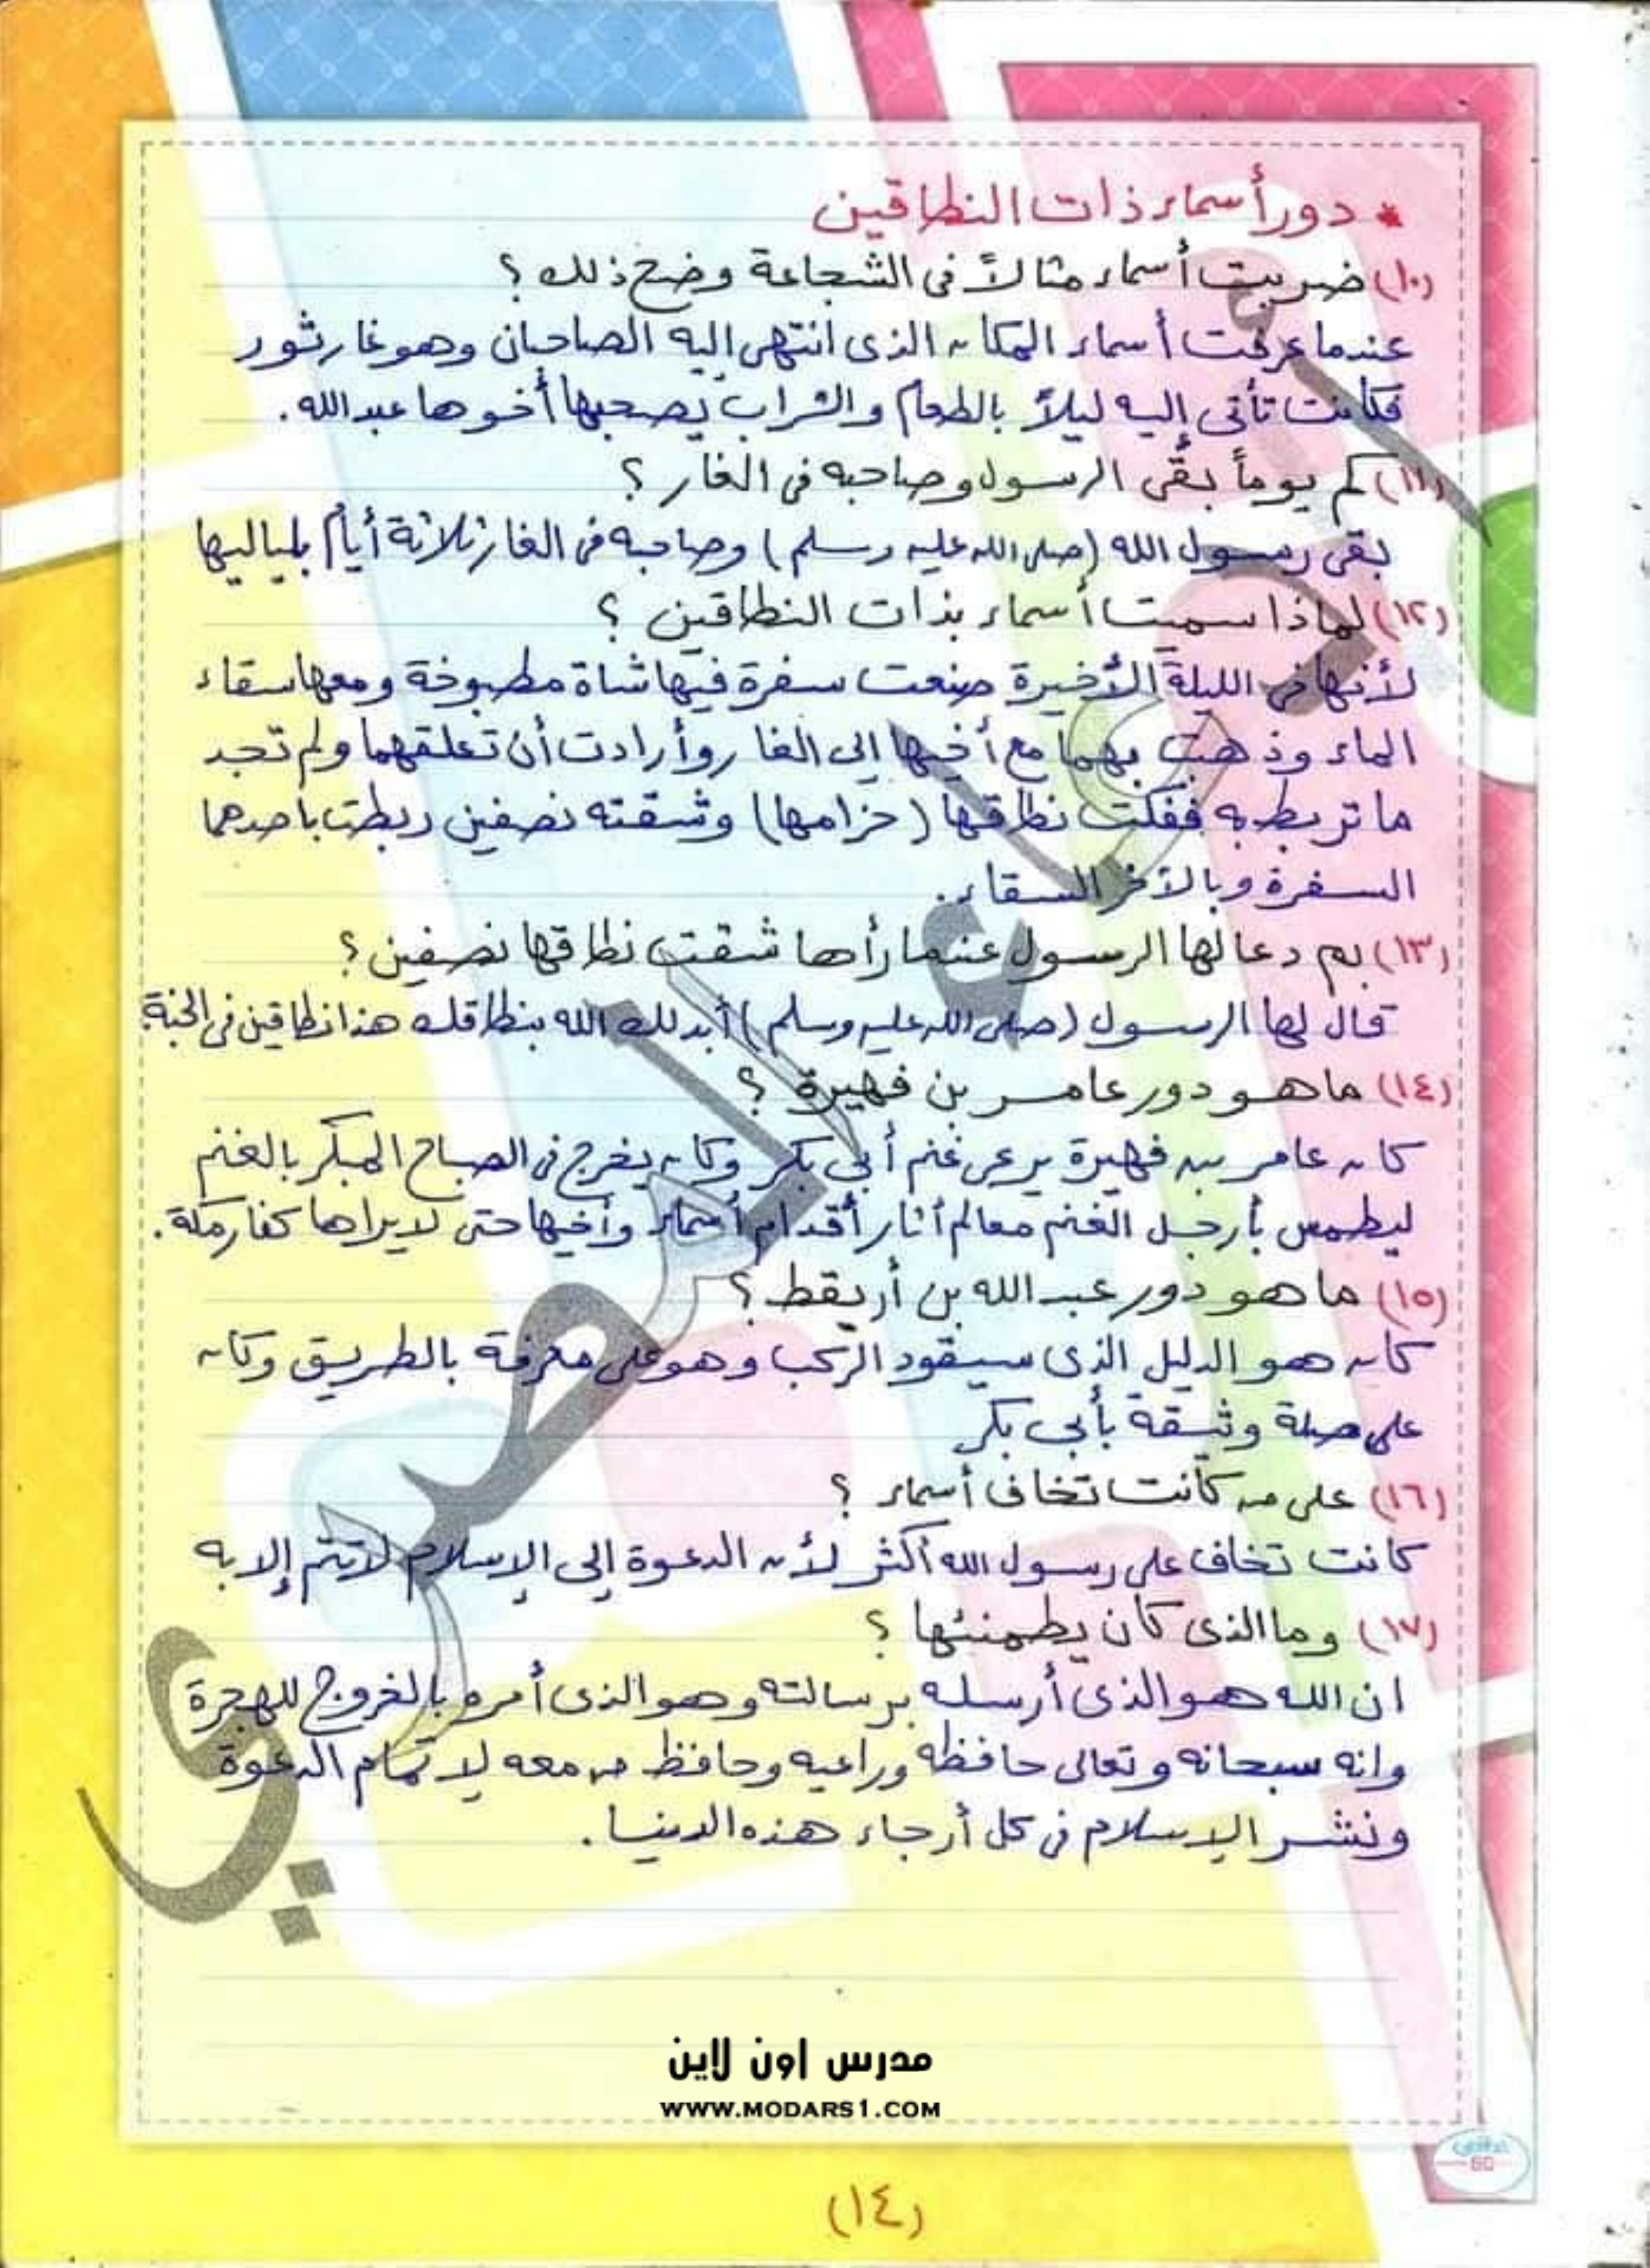 * دور أسماء ذات النطاقين
(١٠) ضربت أسماء مثالاً فى الشجاعة وضح ذلك ؟
عندما عرفت أسماء المكان الذى انتهى إليه الصاحبان وهو غار ثور
فكانت تأتى إليه ليلاً بالطعام والشراب يصحبها أخوها عبدالله .
(١١) كم يوماً بقى الرسول وصاحبه فى الغار ؟
بقى رسول الله (صلى الله عليه وسلم) وصاحبه فى الغار ثلاثة أيام بلياليها
(١٢) لماذا سميت أسماء بذات النطاقين ؟
لأنها فى الليلة الأخيرة صنعت سفرة فيها شاة مطبوخة ومعها سقاء
الماء وذهبت بهما مع أخيها إلى الغار وأرادت أن تعلقهما ولم تجد
ما تربط به ففكت نطاقها (حزامها) وشقته نصفين ربطت بأحدهما
السفرة وبالآخر السقاء .
(١٣) بم دعا لها الرسول عندما رأها شقت نطاقها نصفين ؟
قال لها الرسول (صلى الله عليه وسلم) أبدلك الله بنطاقك هذا نطاقين فى الجنة
(١٤) ما هو دور عامر بن فهيرة ؟
كان عامر بن فهيرة يرعى غنم أبى بكر وكان يخرج فى الصباح المبكر بالغنم
ليطمس بأرجل الغنم معالم أثار أقدام أسماء وأخيها حتى لا يراها كفار مكة .
(١٥) ما هو دور عبد الله بن أريقط ؟
كان هو الدليل الذى سيقود الركب وهو على معرفة بالطريق وكان
على صلة وثيقة بأبى بكر
(١٦) على من كانت تخاف أسماء ؟
كانت تخاف على رسول الله أكثر لأن الدعوة إلى الإسلام لا تتم إلا به
(١٧) وما الذى كان يطمئنها ؟
ان الله هو الذى أرسله برسالته وهو الذى أمره بالخروج للهجرة
وانه سبحانه وتعالى حافظه وراعيه وحافظ من معه لاتمام الدعوة
ونشر الإسلام فى كل أرجاء هذه الدنيا .
مدرس اون لاين
WWW.MODARS1.COM
(١٤)